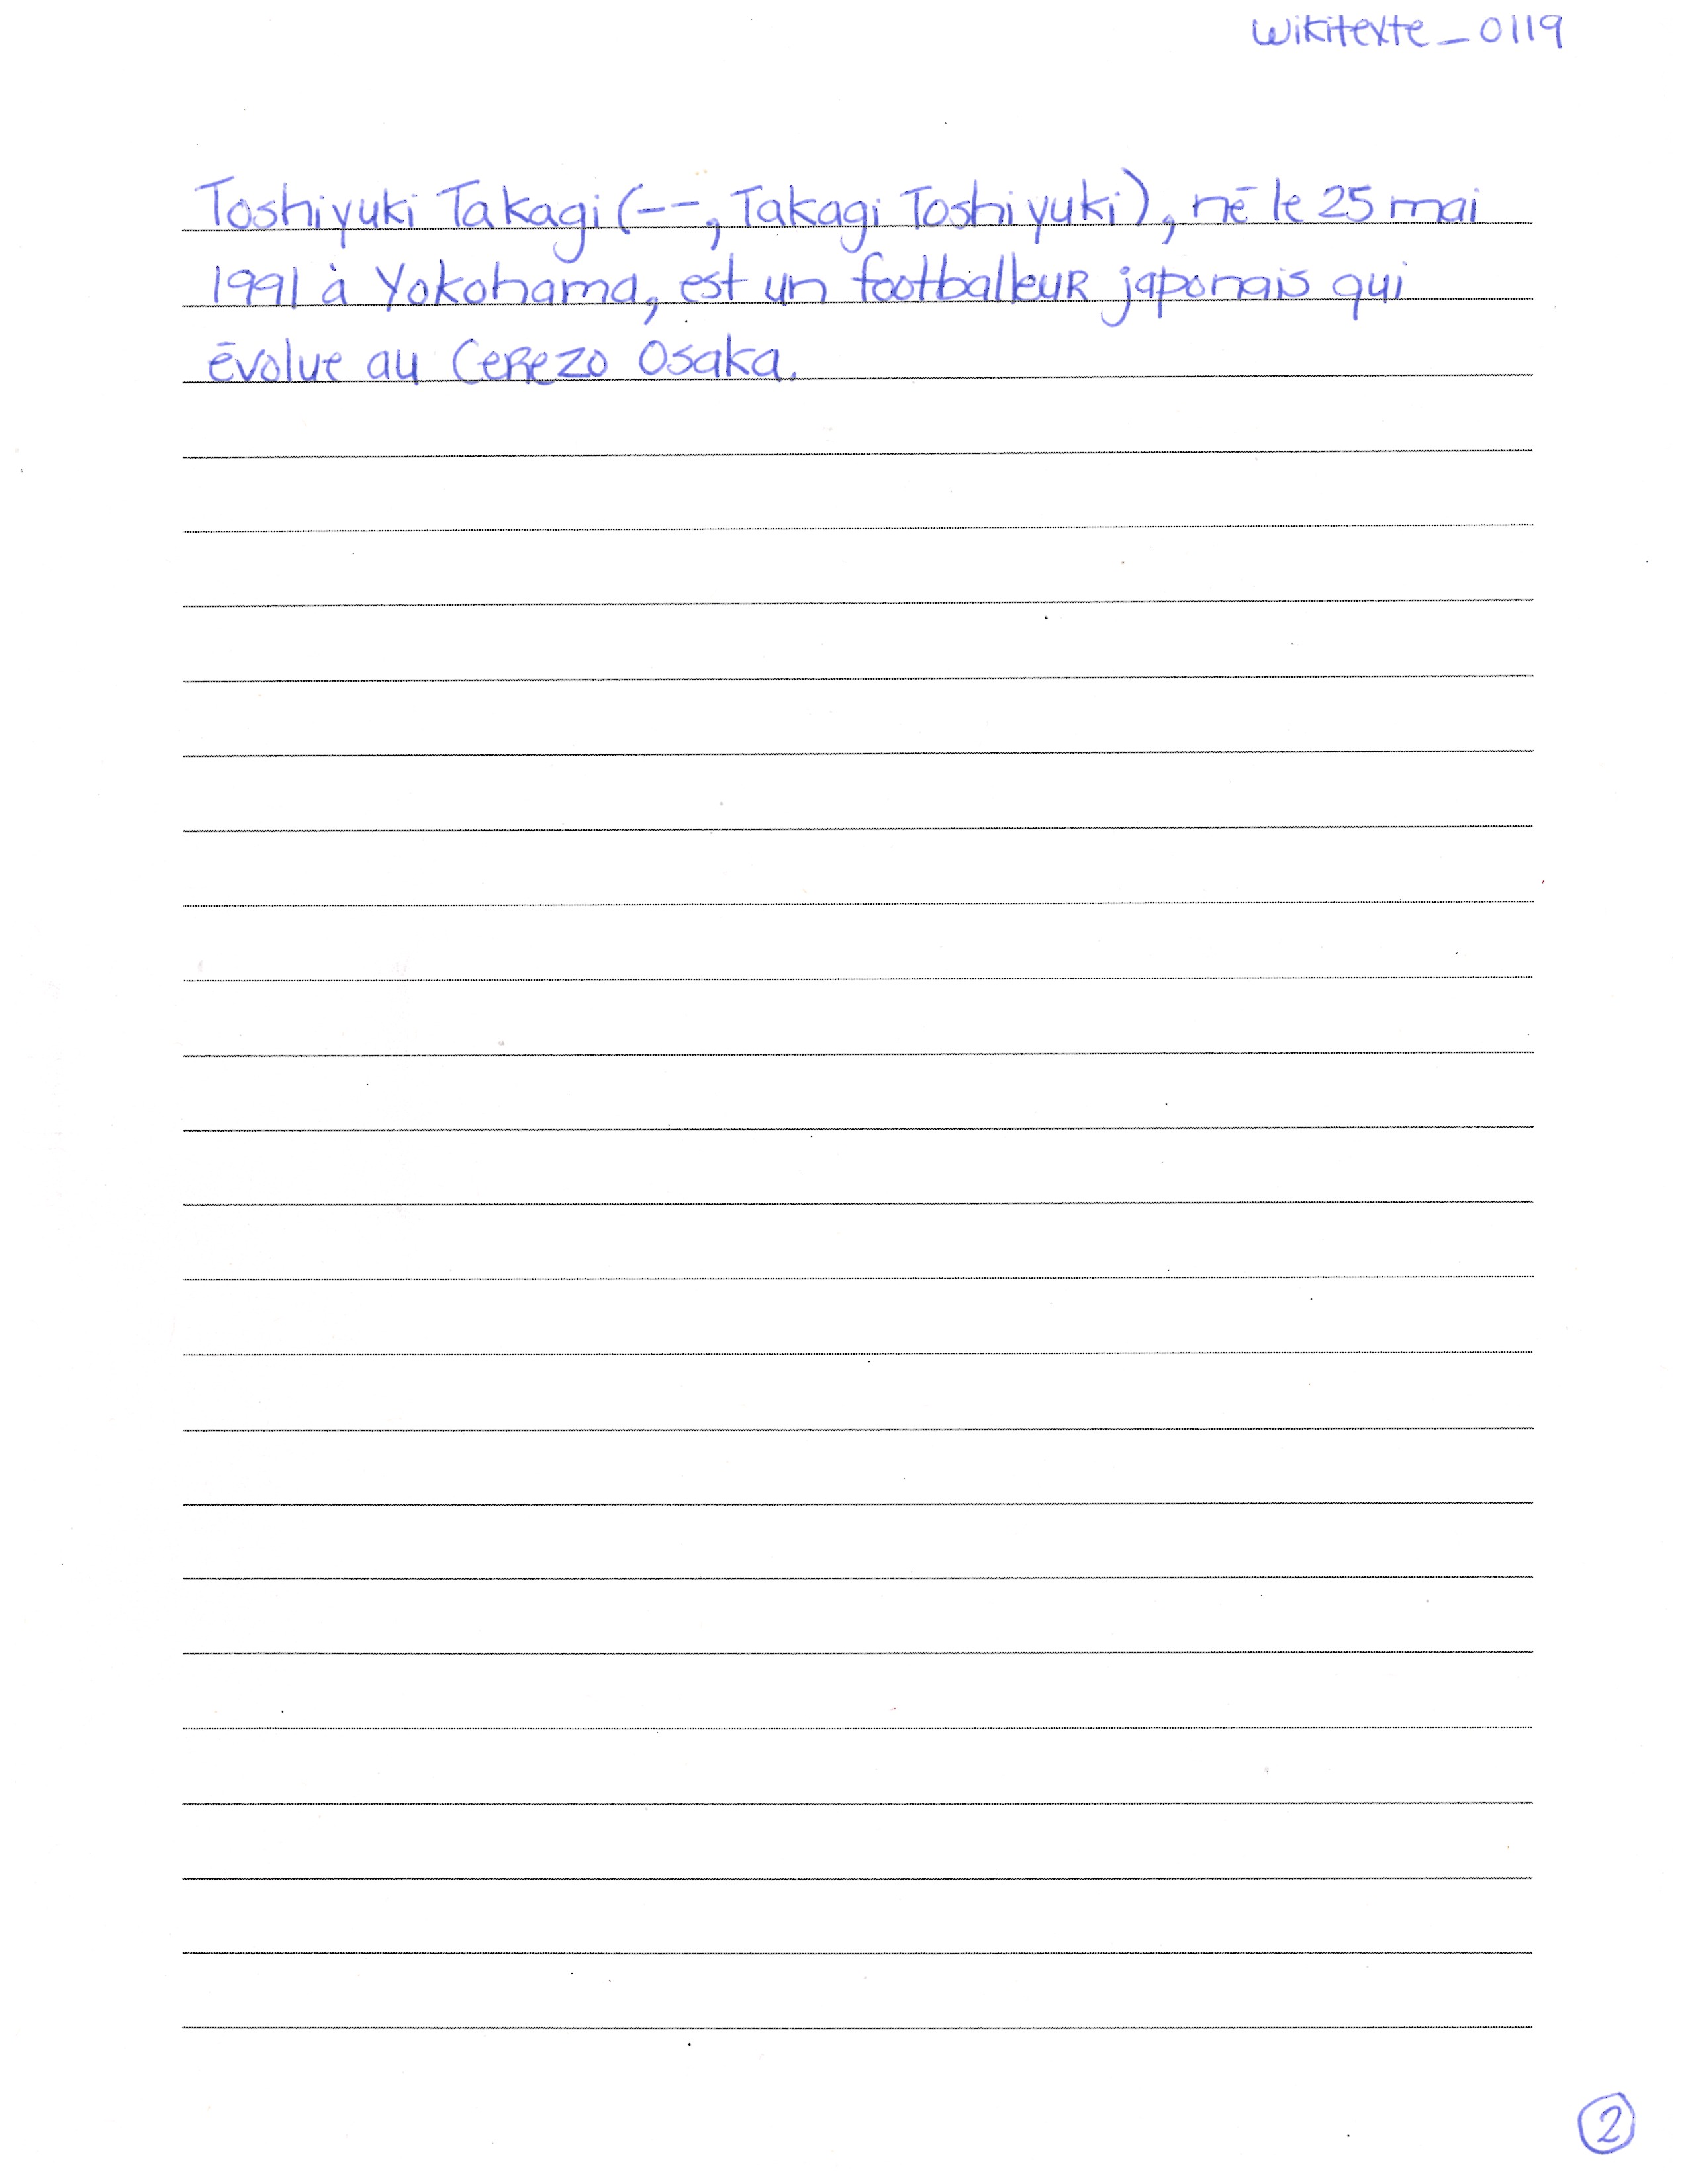 wikitexte_0119
Toshiyuki Takagi (--, Takagi Toshiyuki), né le 25 mai
1991 à Yokohama, est un footballeur japonais qui
évolue au Cerezo Osaka.
2